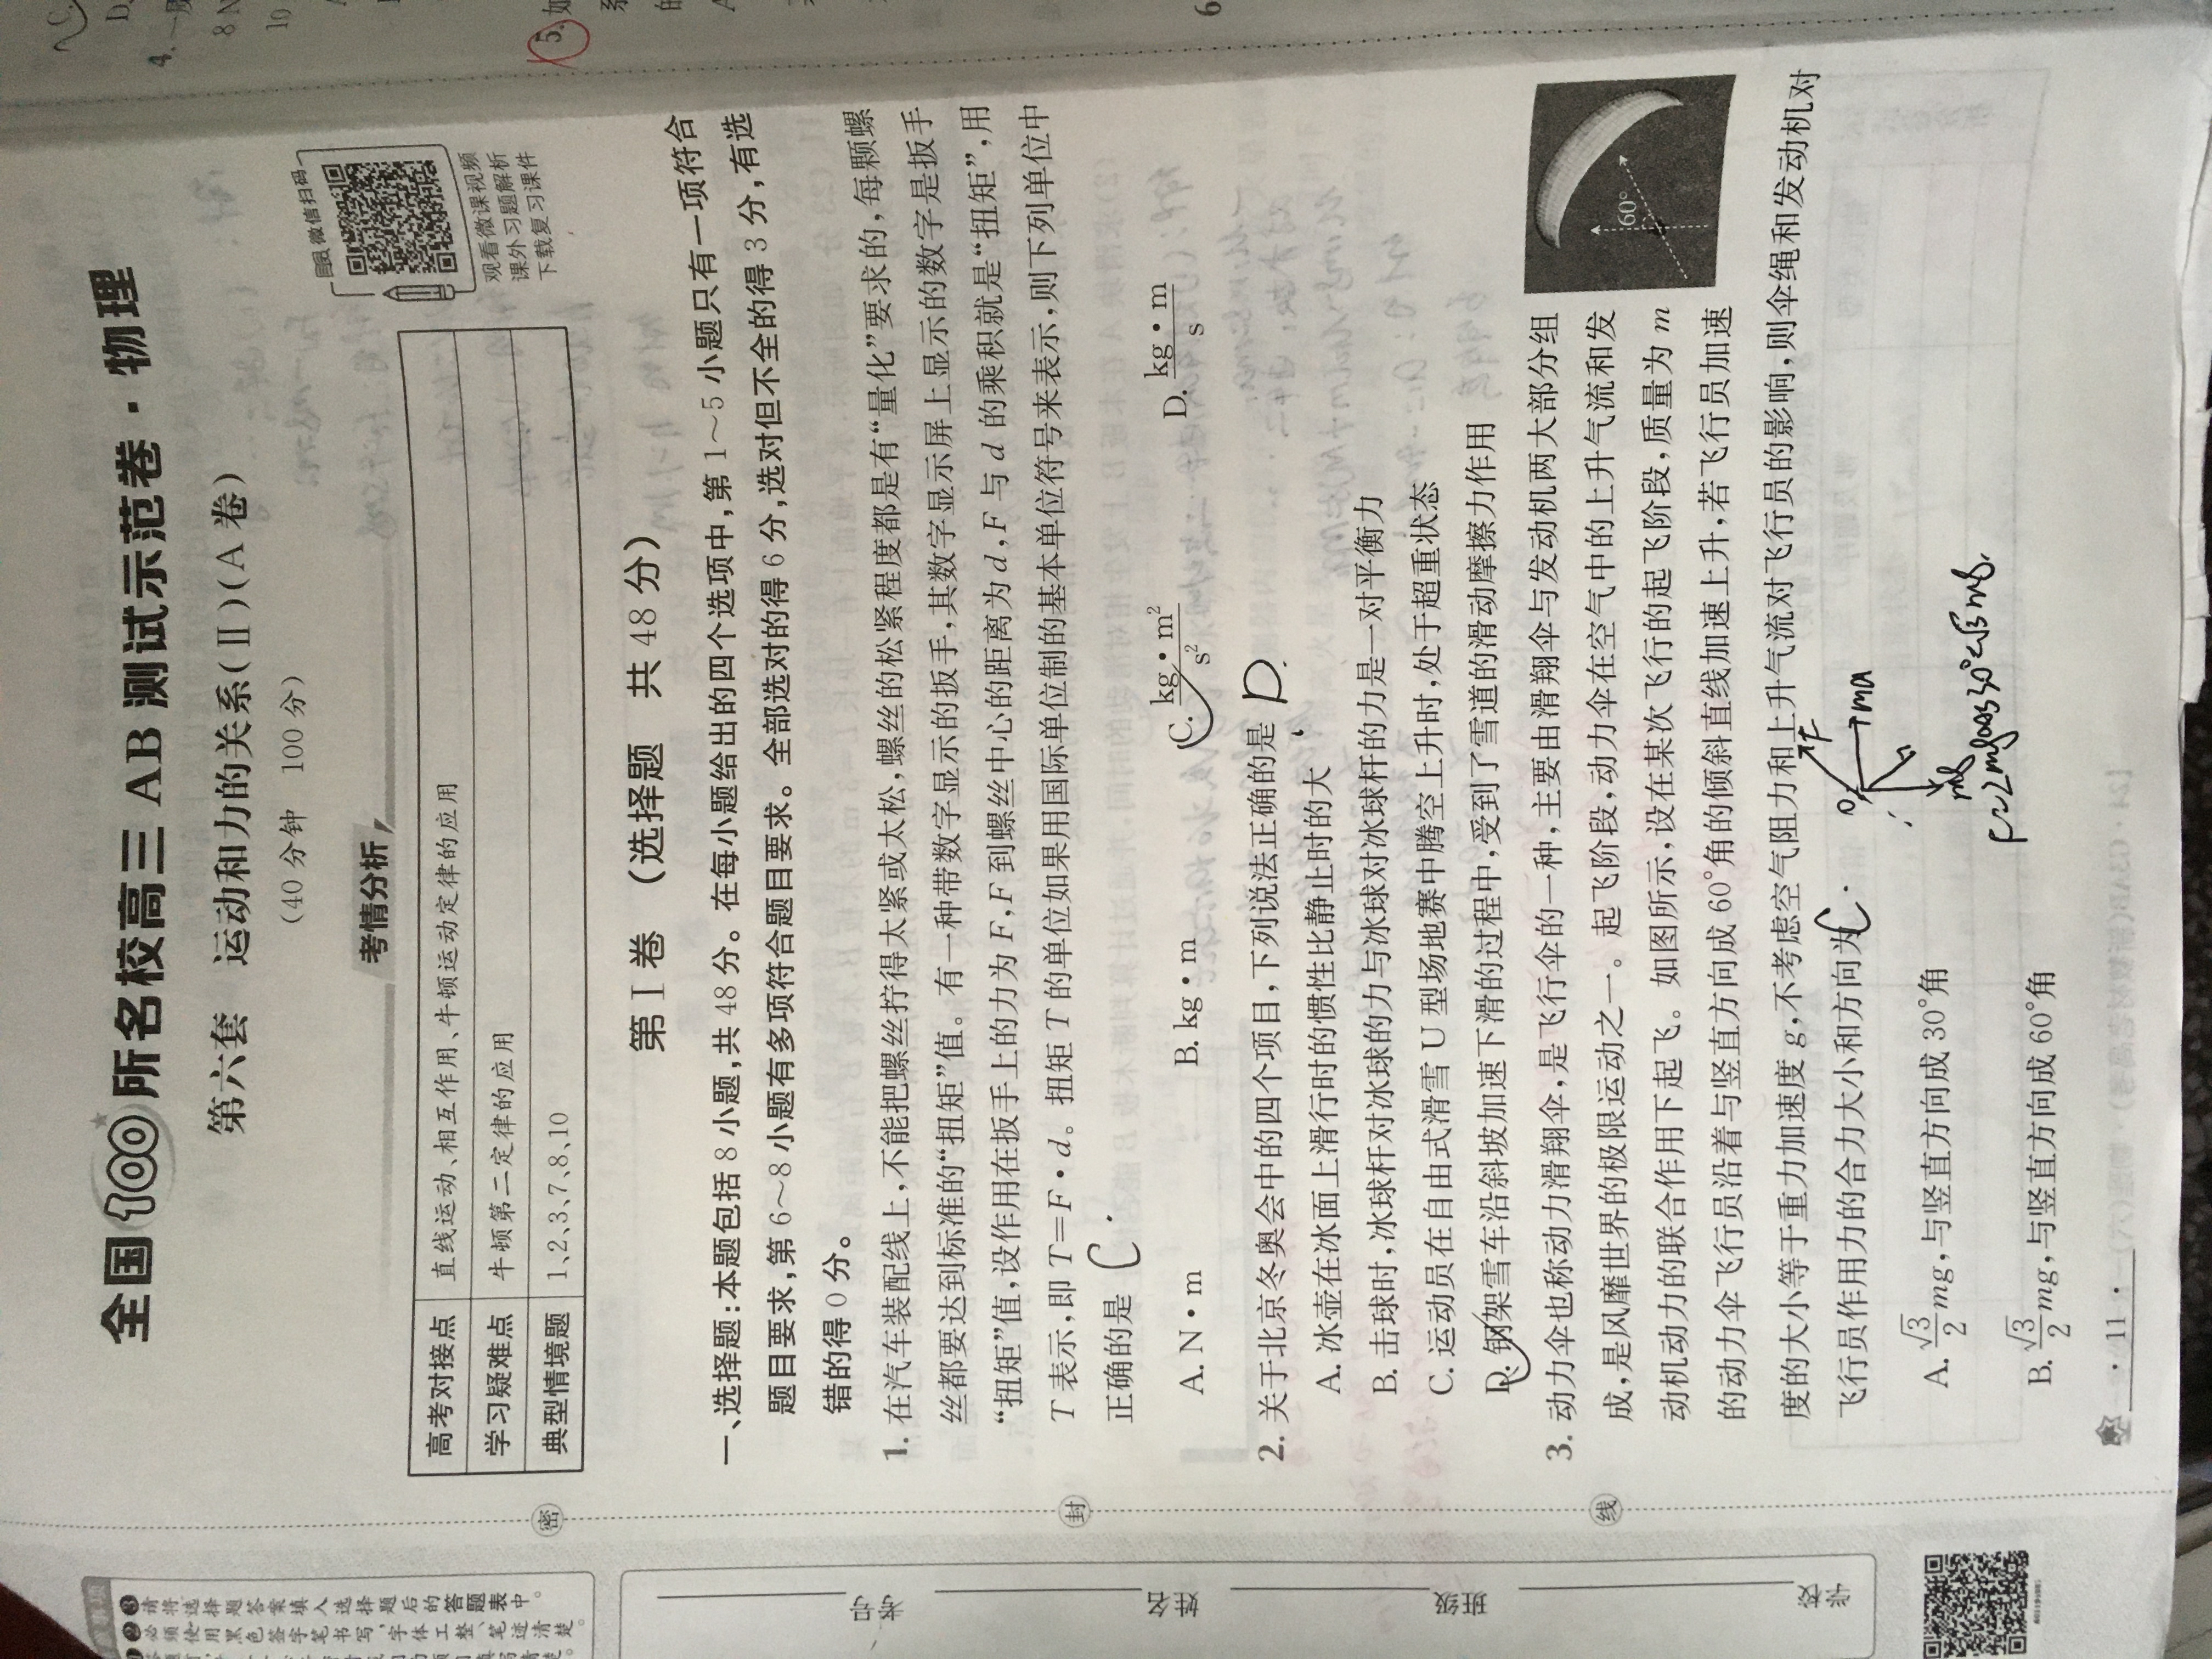 全国100所名校高三 AB 测试示范卷·物理
第六套 运动和力的关系(Ⅱ)(A 卷)
(40 分钟 100 分)
微信扫码
观看微课视频
课外习题解析
下载复习课件
考情分析
高考对接点 直线运动、相互作用、牛顿运动定律的应用
学习疑难点 牛顿第二定律的应用
典型情境题 1、2、3、7、8、10
第Ⅰ卷 (选择题 共 48 分)
一、选择题:本题包括 8 小题,共 48 分。在每小题给出的四个选项中,第 1～5 小题只有一项符合
题目要求,第 6～8 小题有多项符合题目要求。全部选对的得 6 分,选对但不全的得 3 分,有选
错的得 0 分。
1. 在汽车装配线上,不能把螺丝拧得太紧或太松,螺丝的松紧程度都是有“量化”要求的,每颗螺
丝都要达到标准的“扭矩”值。有一种带数字显示的扳手,其数字显示屏上显示的数字是扳手
“扭矩”值,设作用在扳手上的力为 F,F 到螺丝中心的距离为 d,F 与 d 的乘积就是“扭矩”,用
T 表示,即 T=F·d。扭矩 T 的单位如果用国际单位制的基本单位符号来表示,则下列单位中
正确的是 C.
A. N·m B. kg·m C. kg·m²/s² D. kg·m/s
2. 关于北京冬奥会中的四个项目,下列说法正确的是 D.
A. 冰壶在冰面上滑行时的惯性比静止时的大
B. 击球时,冰球杆对冰球的力与冰球对冰球杆的力是一对平衡力
C. 运动员在自由式滑雪 U 型场地赛中腾空上升时,处于超重状态
D. 钢架雪车沿斜坡加速下滑的过程中,受到了雪道的滑动摩擦力作用
3. 动力伞也称动力滑翔伞,是飞行伞的一种,主要由滑翔伞与发动机两大部分组
成,是风靡世界的极限运动之一。起飞阶段,动力伞在空气中的上升气流和发
动机动力的联合作用下起飞。如图所示,设在某次飞行的起飞阶段,质量为 m
的动力伞飞行员沿着与竖直方向成 60°角的倾斜直线加速上升,若飞行员加速
度的大小等于重力加速度 g,不考虑空气阻力和上升气流对飞行员的影响,则伞绳和发动机对
飞行员作用力的合力大小和方向为 C.
60°
F
ma
mg
F=2mgcos30°=√3mg.
A. √3/2 mg,与竖直方向成 30°角
B. √3/2 mg,与竖直方向成 60°角
· 11 ·
密
封
线
学号
姓名
班级
学校
❷ 必须使用黑色签字笔书写,字体工整、笔迹清楚。
❸ 请将选择题答案填入选择题后的答题表中。
4. 一般
5. 如
6